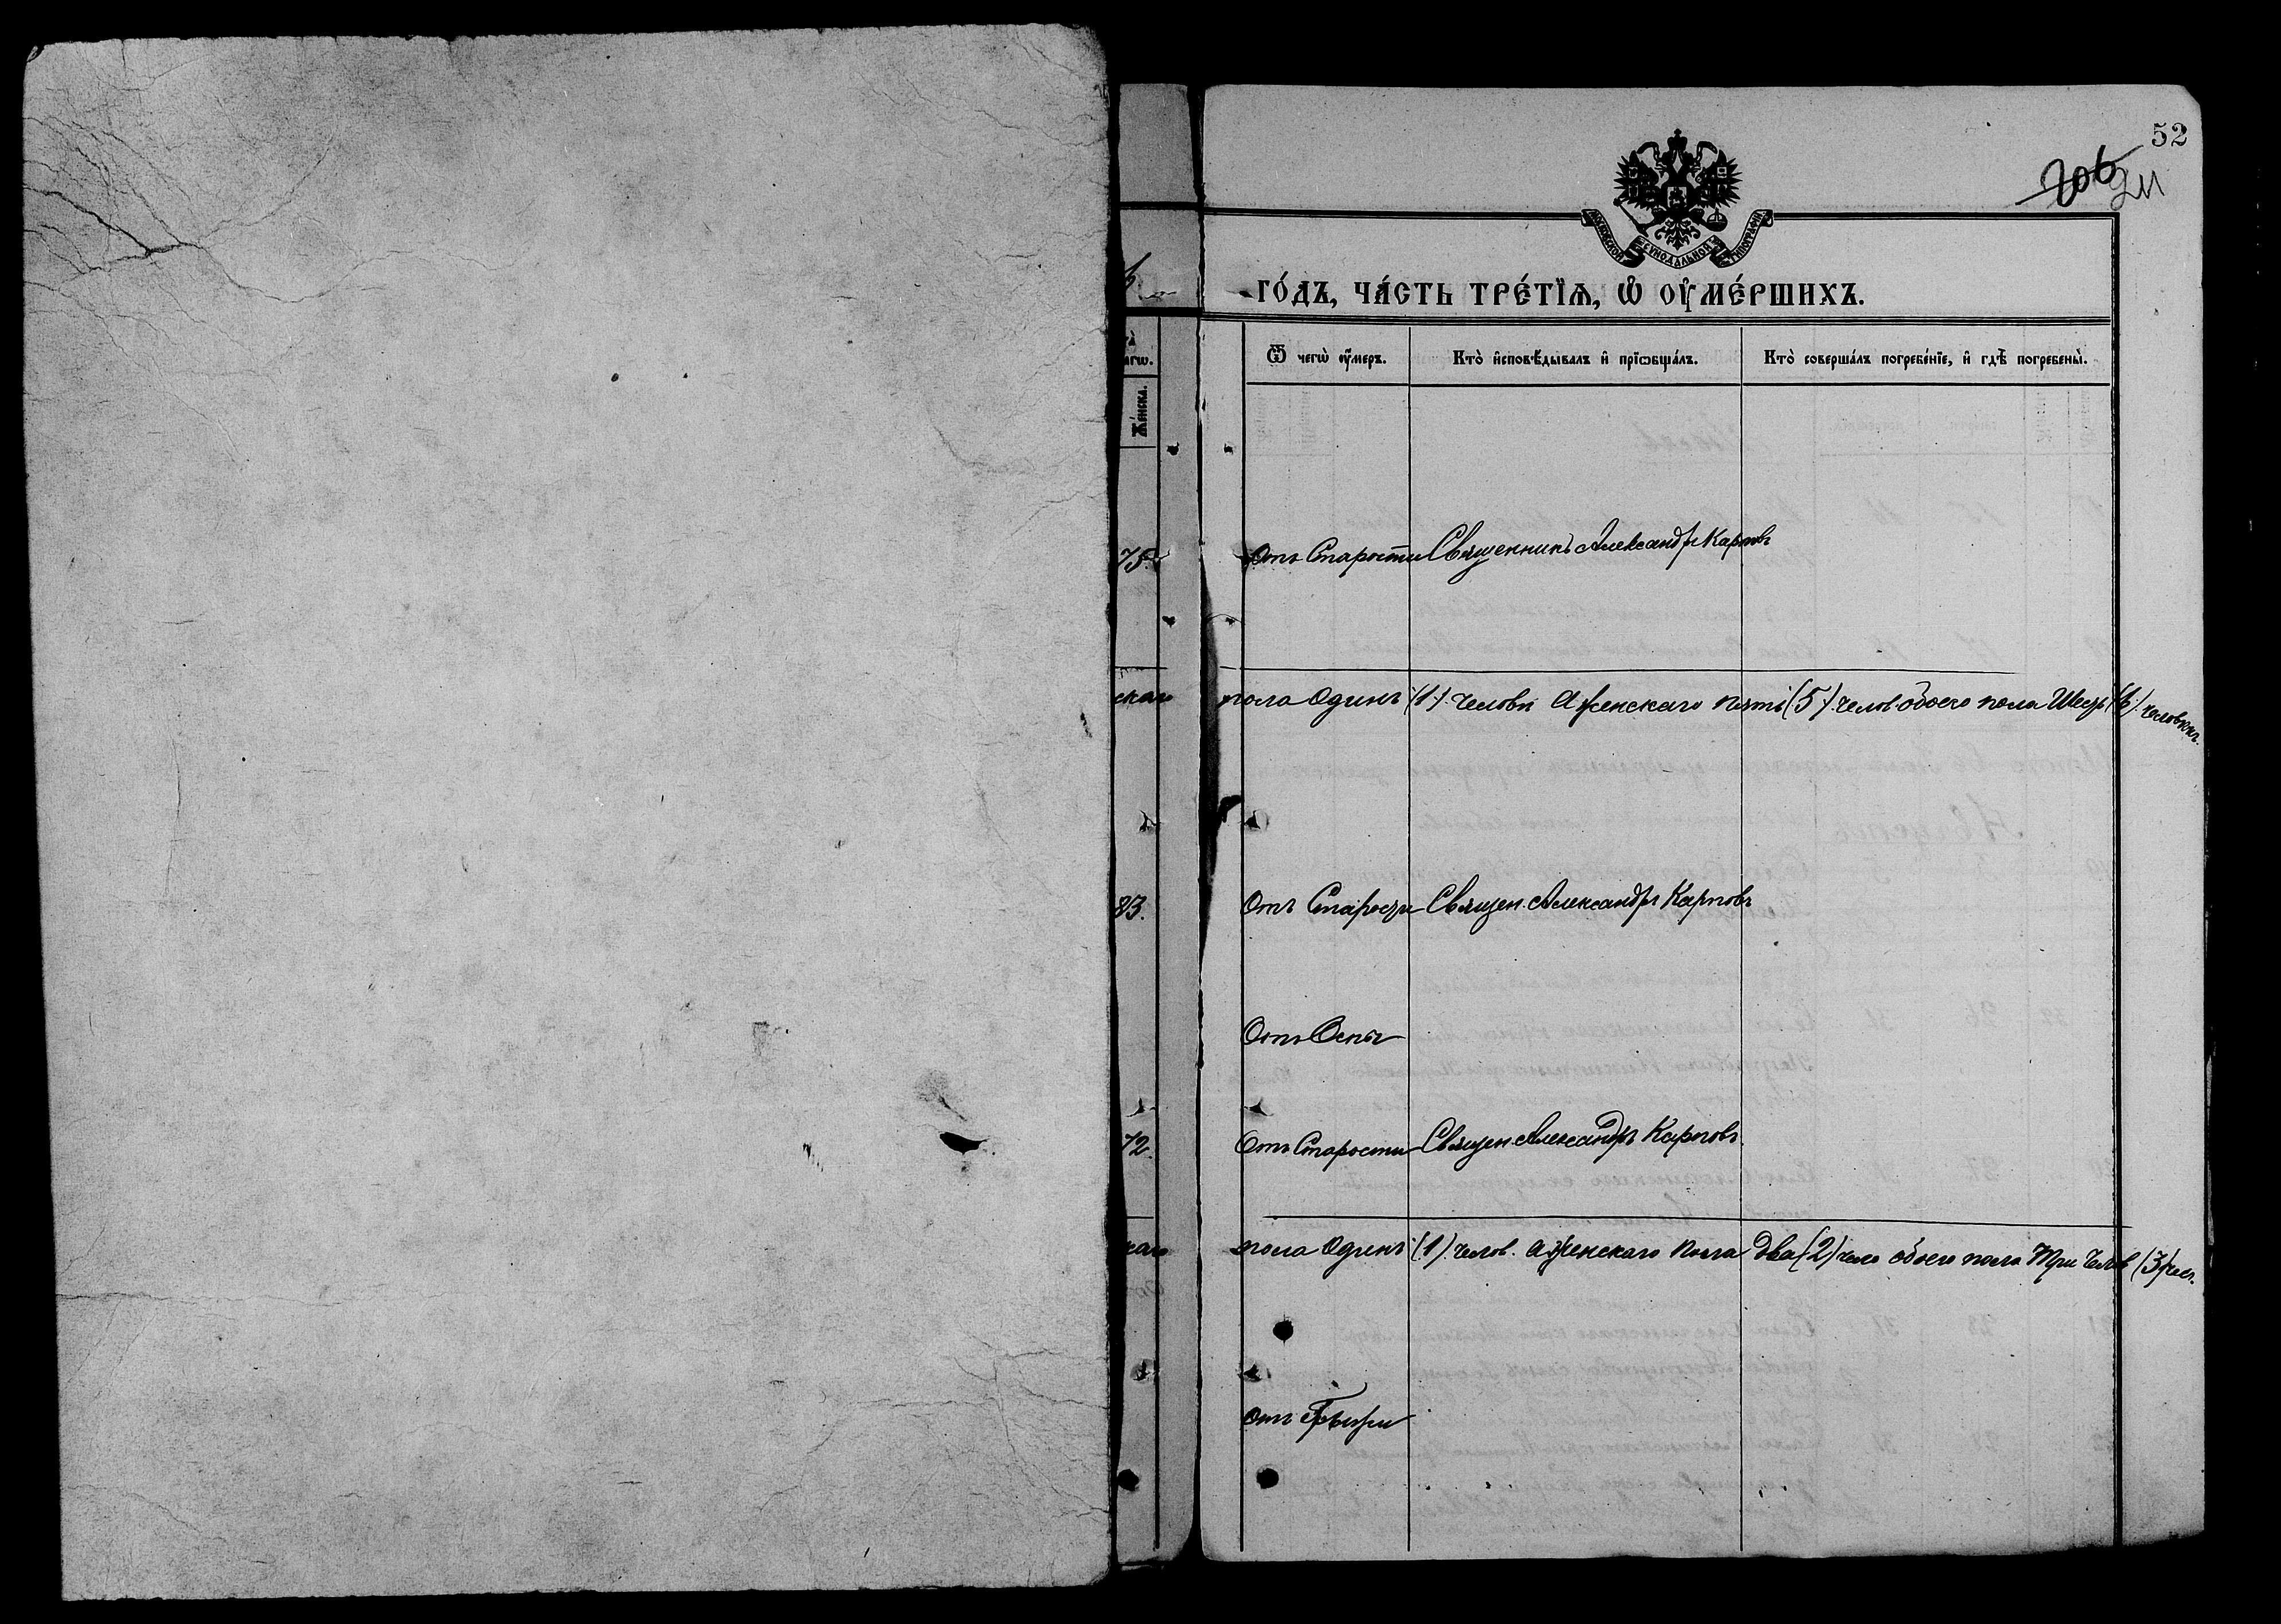 52
206
211
МОСКОВСКОЙ СѴНОДАЛЬНОЙ ТИПОГРАФІИ
ГО́ДЪ, ЧА́СТЬ ТРЕ́ТІѦ, Ѡ҆ ОУ҆МЕ́РШИХЪ.
Ѿ чегѡ̀ ᲂу҆́меръ.
Кто̀ и҆сповѣ́дывалъ и҆ прїѡбща́лъ.
Кто̀ соверша́лъ погребе́нїе, и҆ гдѣ̀ погребены̀.
Же́нска.
75. Отъ Старости Священникъ Александръ Карповъ
скаго пола Одинъ (1) человѣ А женскаго пять (5) челов. обоего пола Шесть (6) человѣкъ.
83. Отъ Старости Священ. Александръ Карповъ
Отъ Оспы
72. Отъ Старости Священ. Александръ Карповъ
каго пола Одинъ (1) челов. А женскаго пола два (2) чело обоего пола Три Челов (3) чел.
Отъ Грыжи